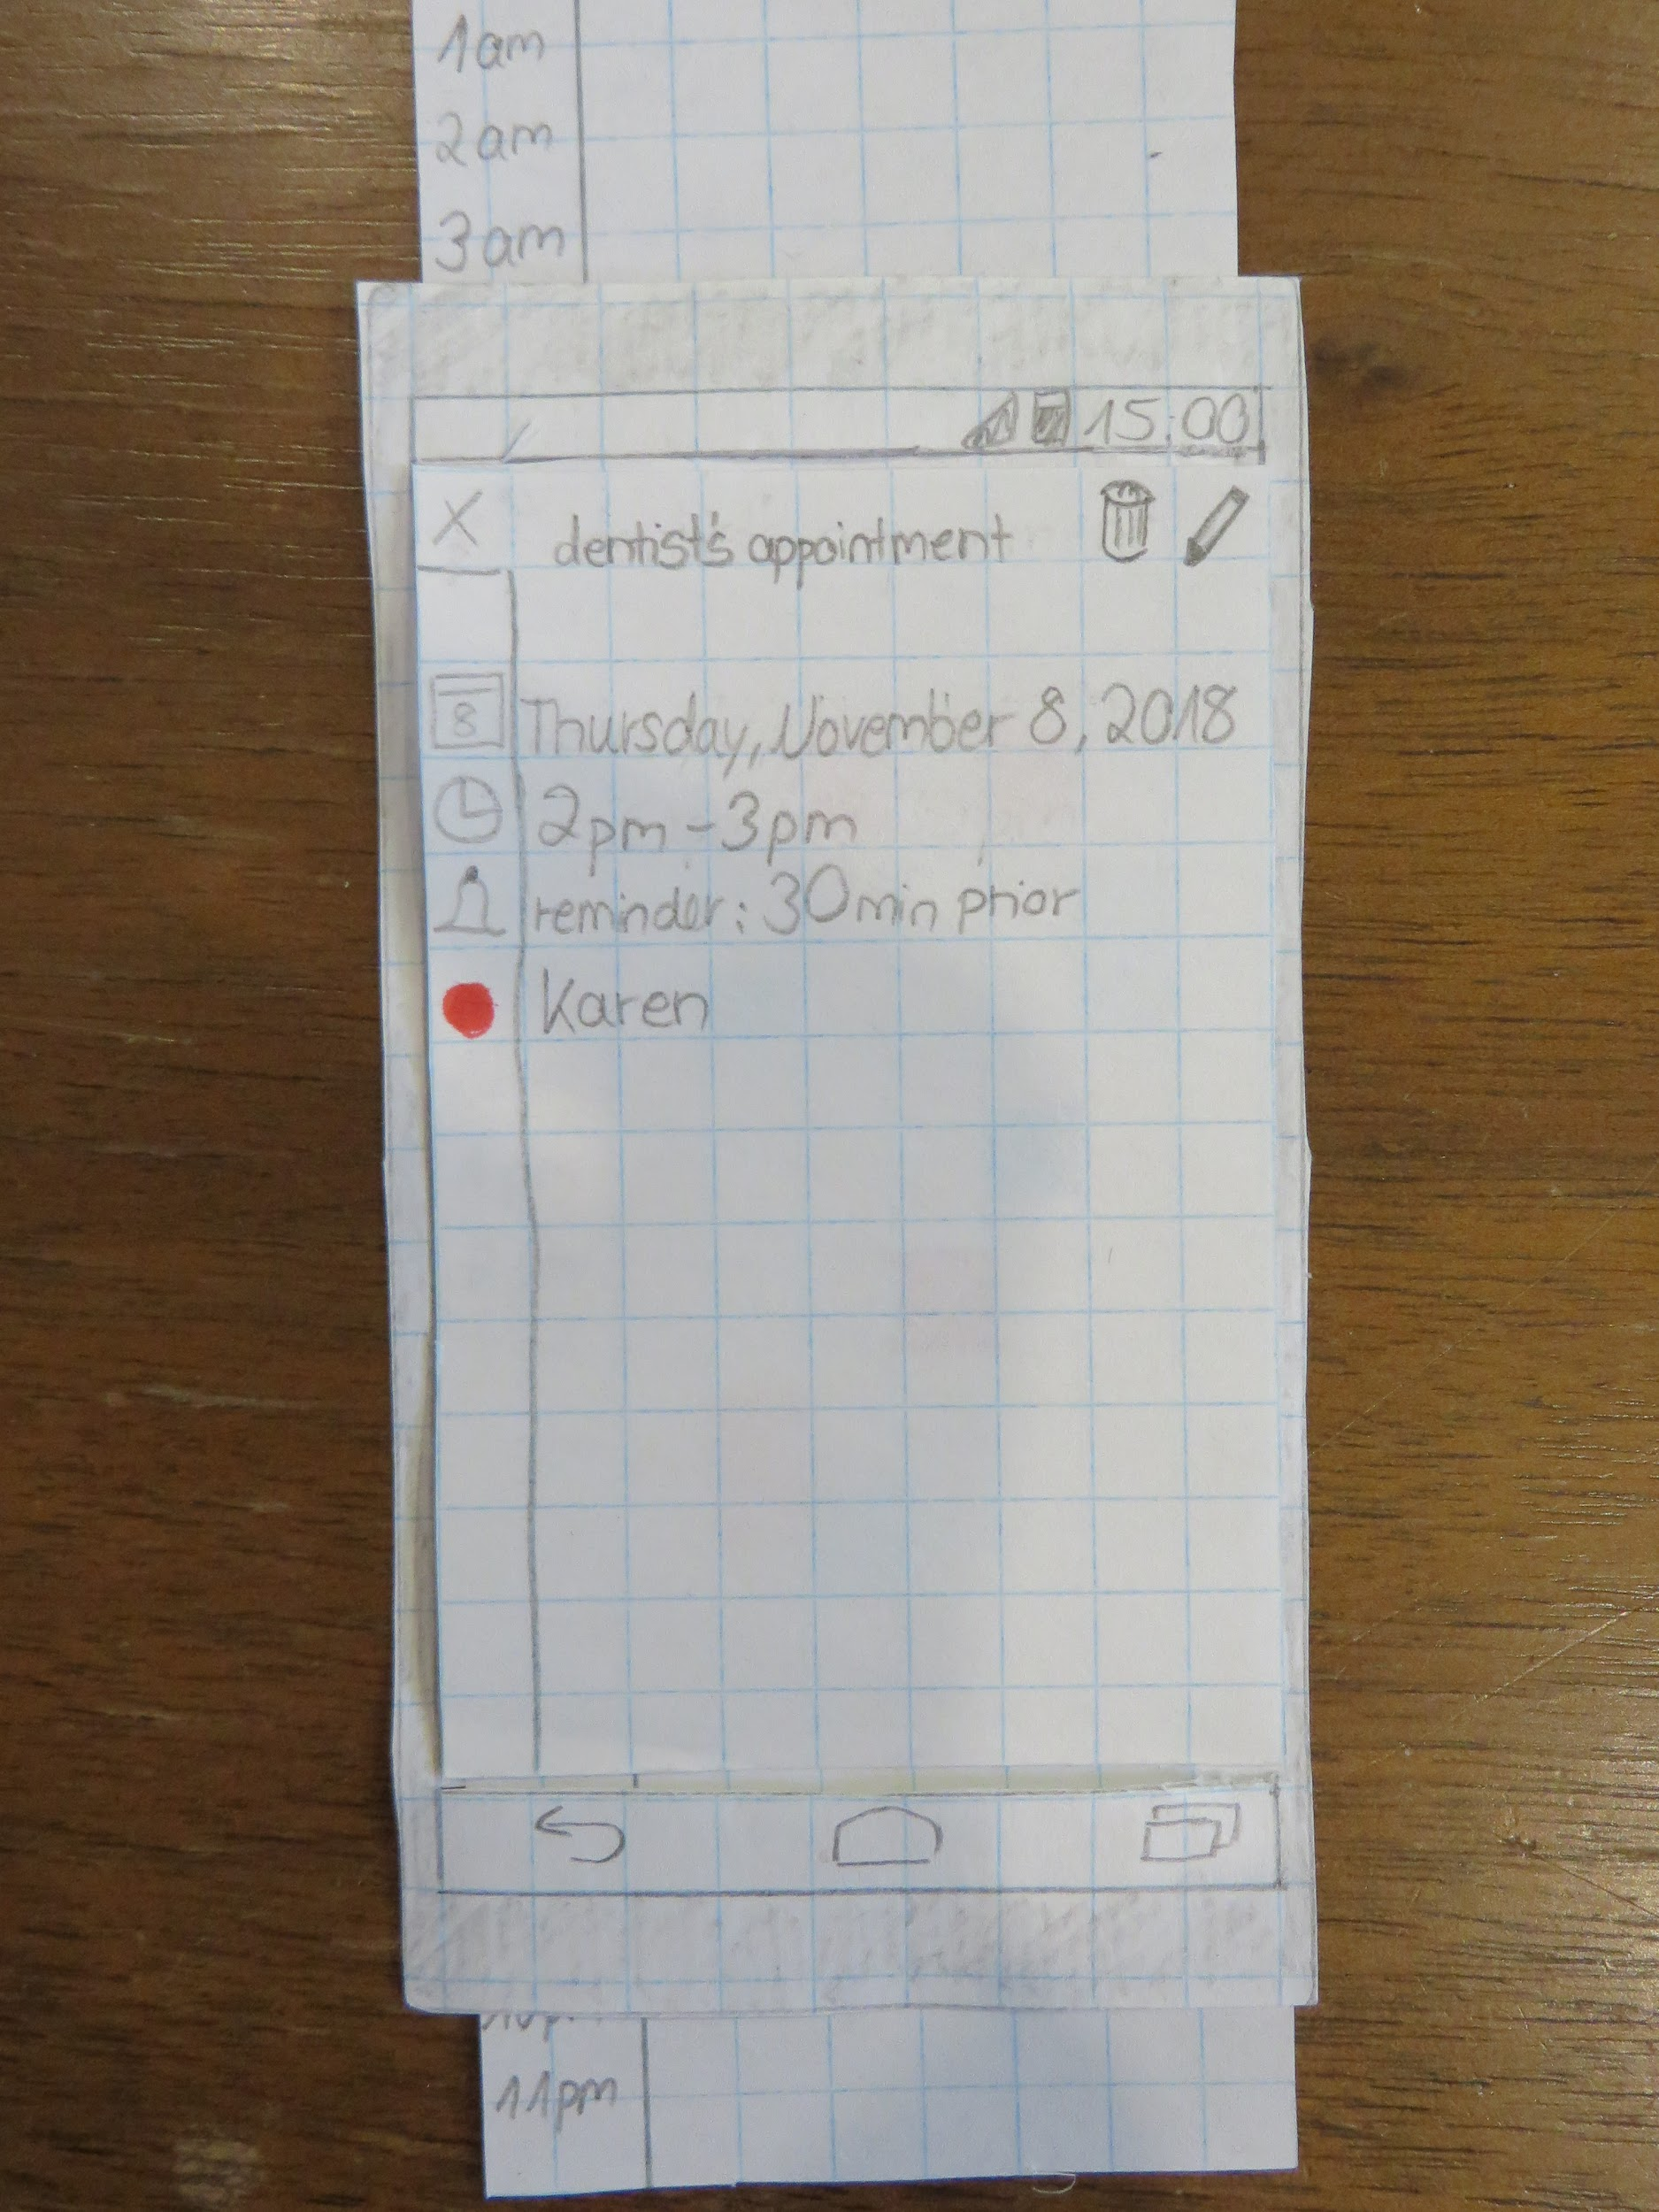 1am
2am
3am
15:00
X
dentist's appointment
8
Thursday, November 8, 2018
2pm - 3pm
reminder: 30min prior
Karen
11pm